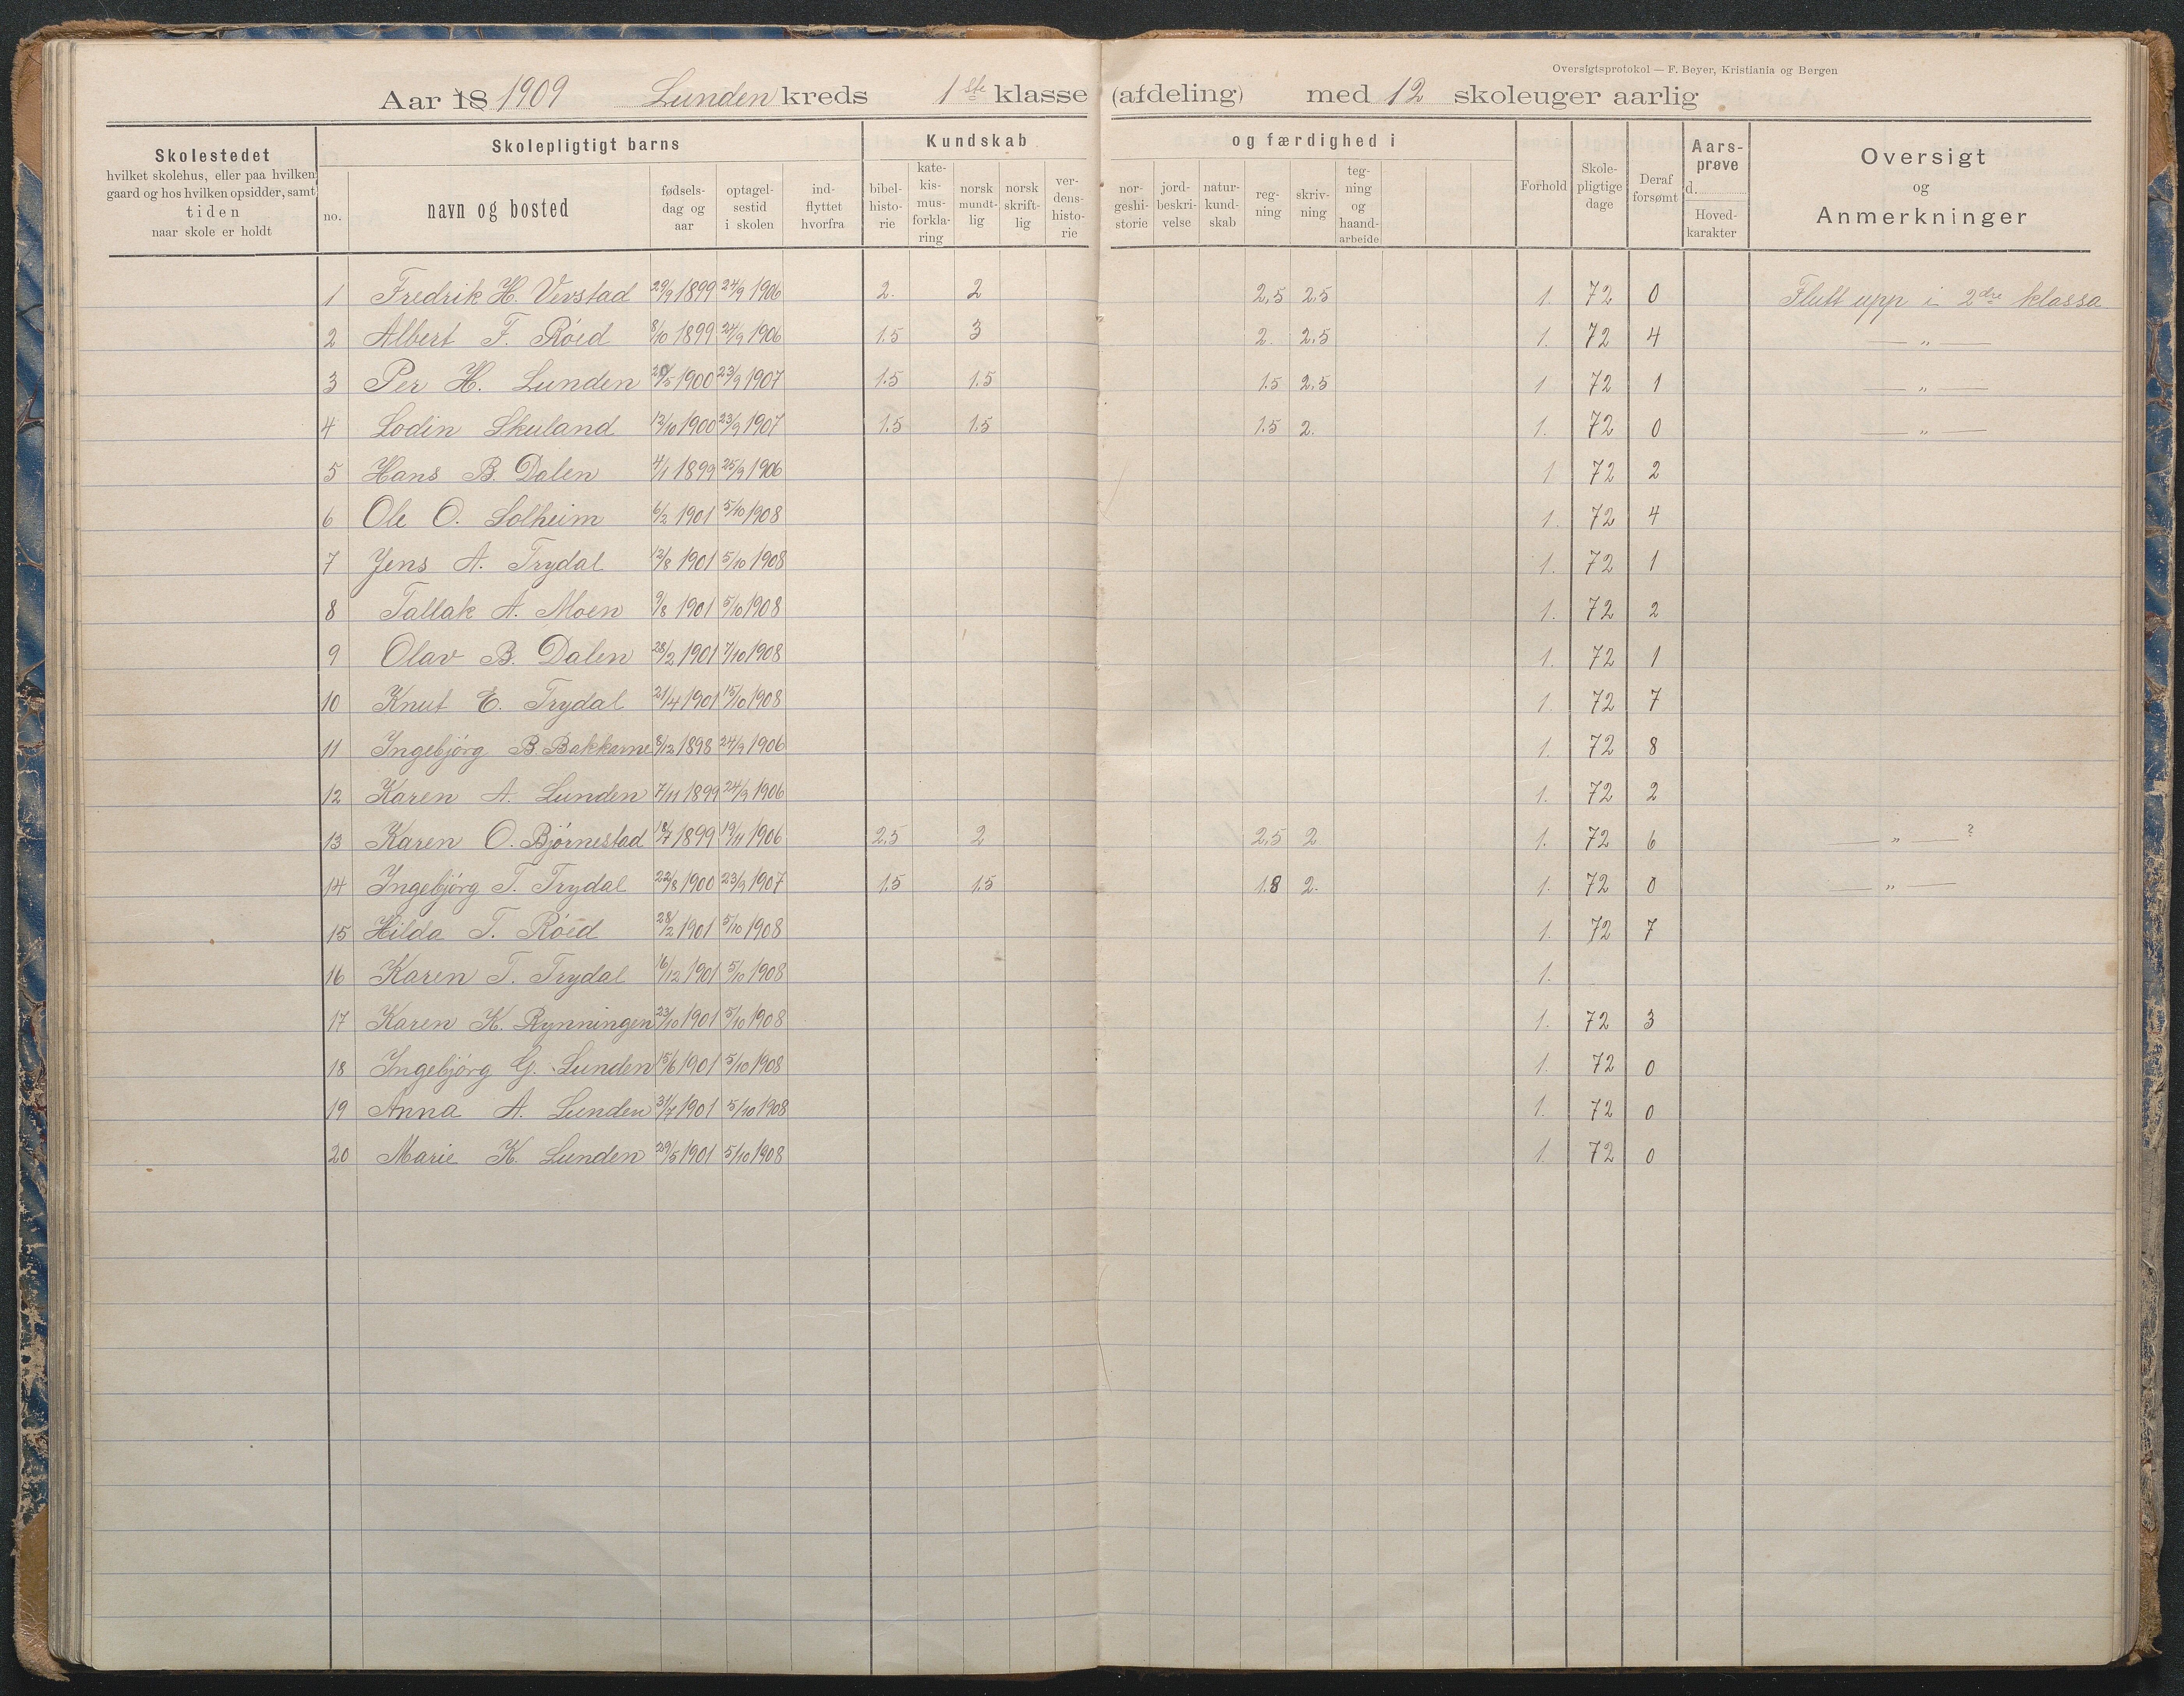 Oversigtsprotokol — F. Beyer, Kristiania og Bergen
Aar 18 1909 Lunden kreds 1ste klasse (afdeling) med 12 skoleuger aarlig
Skolestedet hvilket skolehus, eller paa hvilken gaard og hos hvilken opsidder, samt tiden naar skole er holdt
Skolepligtigt barns
no. navn og bosted fødsels-dag og aar optagel-sestid i skolen ind-flyttet hvorfra
Kundskab og færdighed i
bibel-histo-rie kate-kis-mus-forkla-ring norsk mundt-lig norsk skrift-lig ver-dens-histo-rie nor-geshi-storie jord-beskri-velse natur-kund-skab reg-ning skriv-ning teg-ning og haand-arbeide
Forhold Skole-pligtige dage Deraf forsømt Aars-prøve d. Hoved-karakter
Oversigt og Anmerkninger
1 Fredrik H. Verstad 29/9 1899 24/9 1906 2. 2 2,5 2,5 1. 72 0 Flutt upp i 2dre klassa
2 Albert F. Røed 8/10 1899 24/9 1906 1.5 3 2. 2,5 1. 72 4 — „ —
3 Per H. Lunden 20/5 1900 23/9 1907 1.5 1.5 1.5 2,5 1 72 1 — „ —
4 Lodin Skuland 12/10 1900 23/9 1907 1.5 1.5 1.5 2. 1. 72 0 — „ —
5 Hans B. Dalen 4/1 1899 25/9 1906 1 72 2
6 Ole O. Solheim 6/2 1901 5/10 1908 1. 72 4
7 Jens A. Trydal 12/8 1901 5/10 1908 1. 72 1
8 Tallak A. Moen 9/8 1901 5/10 1908 1. 72 2
9 Olav B. Dalen 28/2 1901 7/10 1908 1. 72 1
10 Knut E. Trydal 21/4 1901 15/10 1908 1. 72 7
11 Ingebjørg B. Bakkarne 8/12 1898 24/9 1906 1. 72 8
12 Karen A. Lunden 7/11 1899 24/9 1906 1. 72 2
13 Karen O. Bjørnestad 18/7 1899 19/11 1906 2,5 2 2,5 2 1. 72 6 — „ — ?
14 Ingebjørg T. Trydal 22/8 1900 23/9 1907 1.5 1.5 1.8 2. 1. 72 0 — „ —
15 Hilda T. Røed 28/2 1901 5/10 1908 1. 72 7
16 Karen T. Trydal 16/12 1901 5/10 1908 1.
17 Karen K. Rynningen 23/10 1901 5/10 1908 1. 72 3
18 Ingebjørg G. Lunden 15/6 1901 5/10 1908 1. 72 0
19 Anna A. Lunden 31/7 1901 5/10 1908 1. 72 0
20 Marie K. Lunden 29/5 1901 5/10 1908 1. 72 0